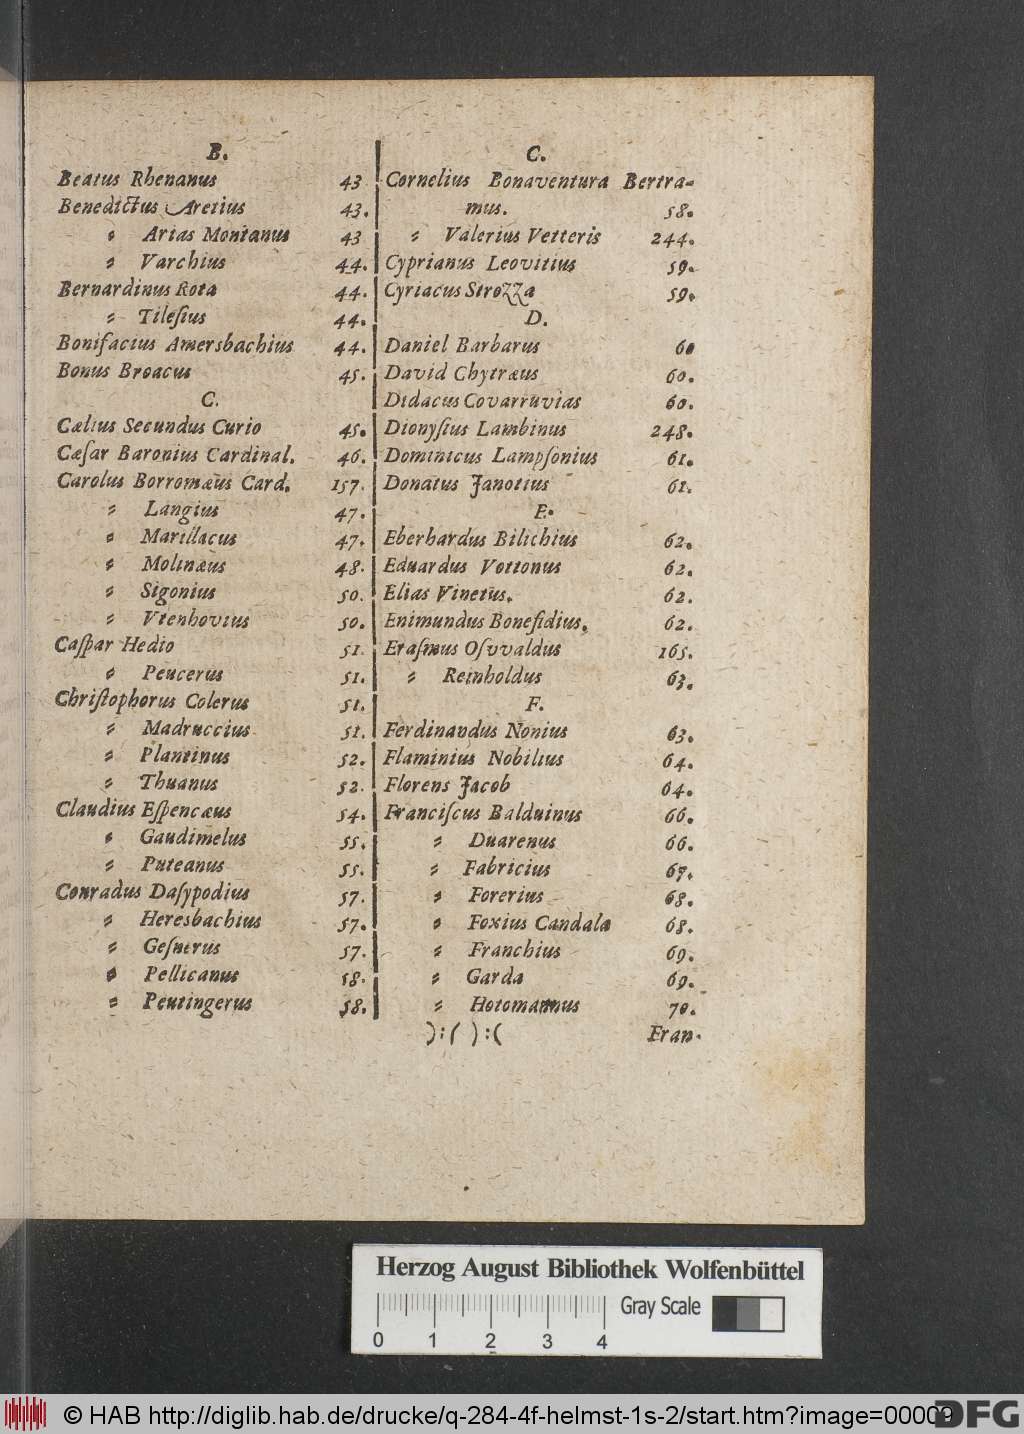 B.
Beatus Rhenanus 43
Benedictus Aretius 43.
⸗ Arias Montanus 43
⸗ Varchius 44.
Bernardinus Rota 44.
⸗ Tileſius 44.
Bonifacius Amersbachius 44.
Bonus Broacus 45.
C.
Cælius Secundus Curio 45.
Cæſar Baronius Cardinal. 46.
Carolus Borromæus Card. 157.
⸗ Langius 47.
⸗ Marillacus 47.
⸗ Molinæus 48.
⸗ Sigonius 50.
⸗ Vtenhovius 50.
Caſpar Hedio 51.
⸗ Peucerus 51.
Chriſtophorus Colerus 51.
⸗ Madruccius 51.
⸗ Plantinus 52.
⸗ Thuanus 52.
Claudius Eſpencæus 54.
⸗ Gaudimelus 55.
⸗ Puteanus 55.
Conradus Daſypodius 57.
⸗ Heresbachius 57.
⸗ Geſnerus 57.
⸗ Pellicanus 58.
⸗ Peutingerus 58.
C.
Cornelius Bonaventura Bertra⸗
mus. 58.
⸗ Valerius Vetteris 244.
Cyprianus Leovitius 59.
Cyriacus Strozza 59.
D.
Daniel Barbarus 60
David Chytræus 60.
Didacus Covarruvias 60.
Dionyſius Lambinus 248.
Dominicus Lampſonius 61.
Donatus Janotius 61.
E.
Eberhardus Bilichius 62.
Eduardus Vottonus 62.
Elias Vinetus. 62.
Enimundus Bonefidius. 62.
Eraſmus Oſvvaldus 165.
⸗ Reinholdus 63.
F.
Ferdinandus Nonius 63.
Flaminius Nobilius 64.
Florens Jacob 64.
Franciſcus Balduinus 66.
⸗ Duarenus 66.
⸗ Fabricius 67.
⸗ Forerius 68.
⸗ Foxius Candala 68.
⸗ Franchius 69.
⸗ Garda 69.
⸗ Hotomannus 70.
):( ):( Fran-
Herzog August Bibliothek Wolfenbüttel
Gray Scale
0 1 2 3 4
© HAB http://diglib.hab.de/drucke/q-284-4f-helmst-1s-2/start.htm?image=00009
DFG